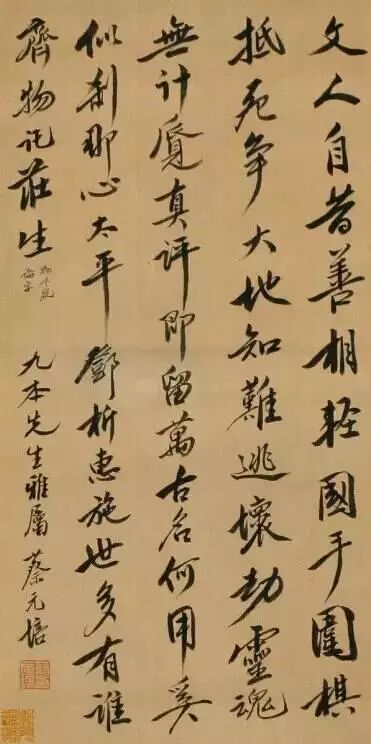 文人自昔善相輕國手圍棋
抵死爭大地知難逃壞劫靈魂
無計覔真評即留萬古名何用奚
似剎那心太平鄧析惠施世多有誰
齊物託莊生
物下脫
論字
九本先生雅屬 蔡元培